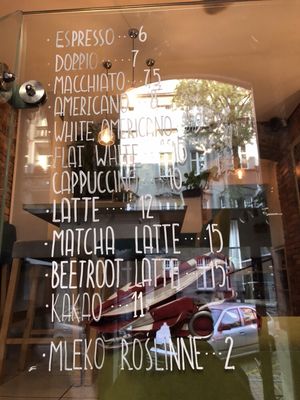 · ESPRESSO··· 6
· DOPPIO ··· 7
· MACCHIATO ·· 7,5
· AMERICANO ·· 8
· WHITE AMERICANO
· FLAT WHITE ··· 10
· CAPPUCCINO ··· 10
· LATTE ···· 12
· MATCHA LATTE ·· 15
· BEETROOT LATTE ··· 15
· KAKAO ··· 11
· MLEKO ROŚLINNE··· 2